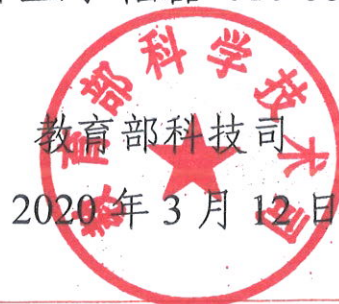 教育部科学技术司
教育部科技司
2020年3月12日